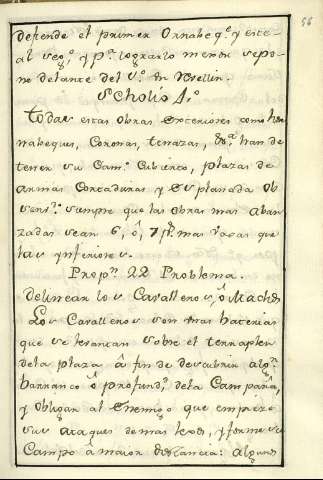 56
defiende el primer Ornabeq.e y este
al seg.o, y p.a lograrlo menor se po-
ne delante del 2.o Un Rebellin.
Scholio 4.o
todas estas obras exteriores como hor
nabeques, Coronas, tenazas, &.a han de
tener su Cam.o Cubierto, plazas de
armas Cortaduras y Esplanada Ob
servr.e siempre que las obras mas aban
zadas sean 6, ô, 7 p.s mas vajas que
las ynferiores.
Prop.n 22 Problema.
Delinear los Cavalleros, ô Machos
Los Cavalleros son mas baterias
que se levantan sobre el terraplen
dela plaza â fin de descubrir alg.n
barranco ô profund.d dela Campaña,
y obligan al Enemigo que empieze
sus ataques de mas lexos, y forme su
Campo â maior distancia: algunos